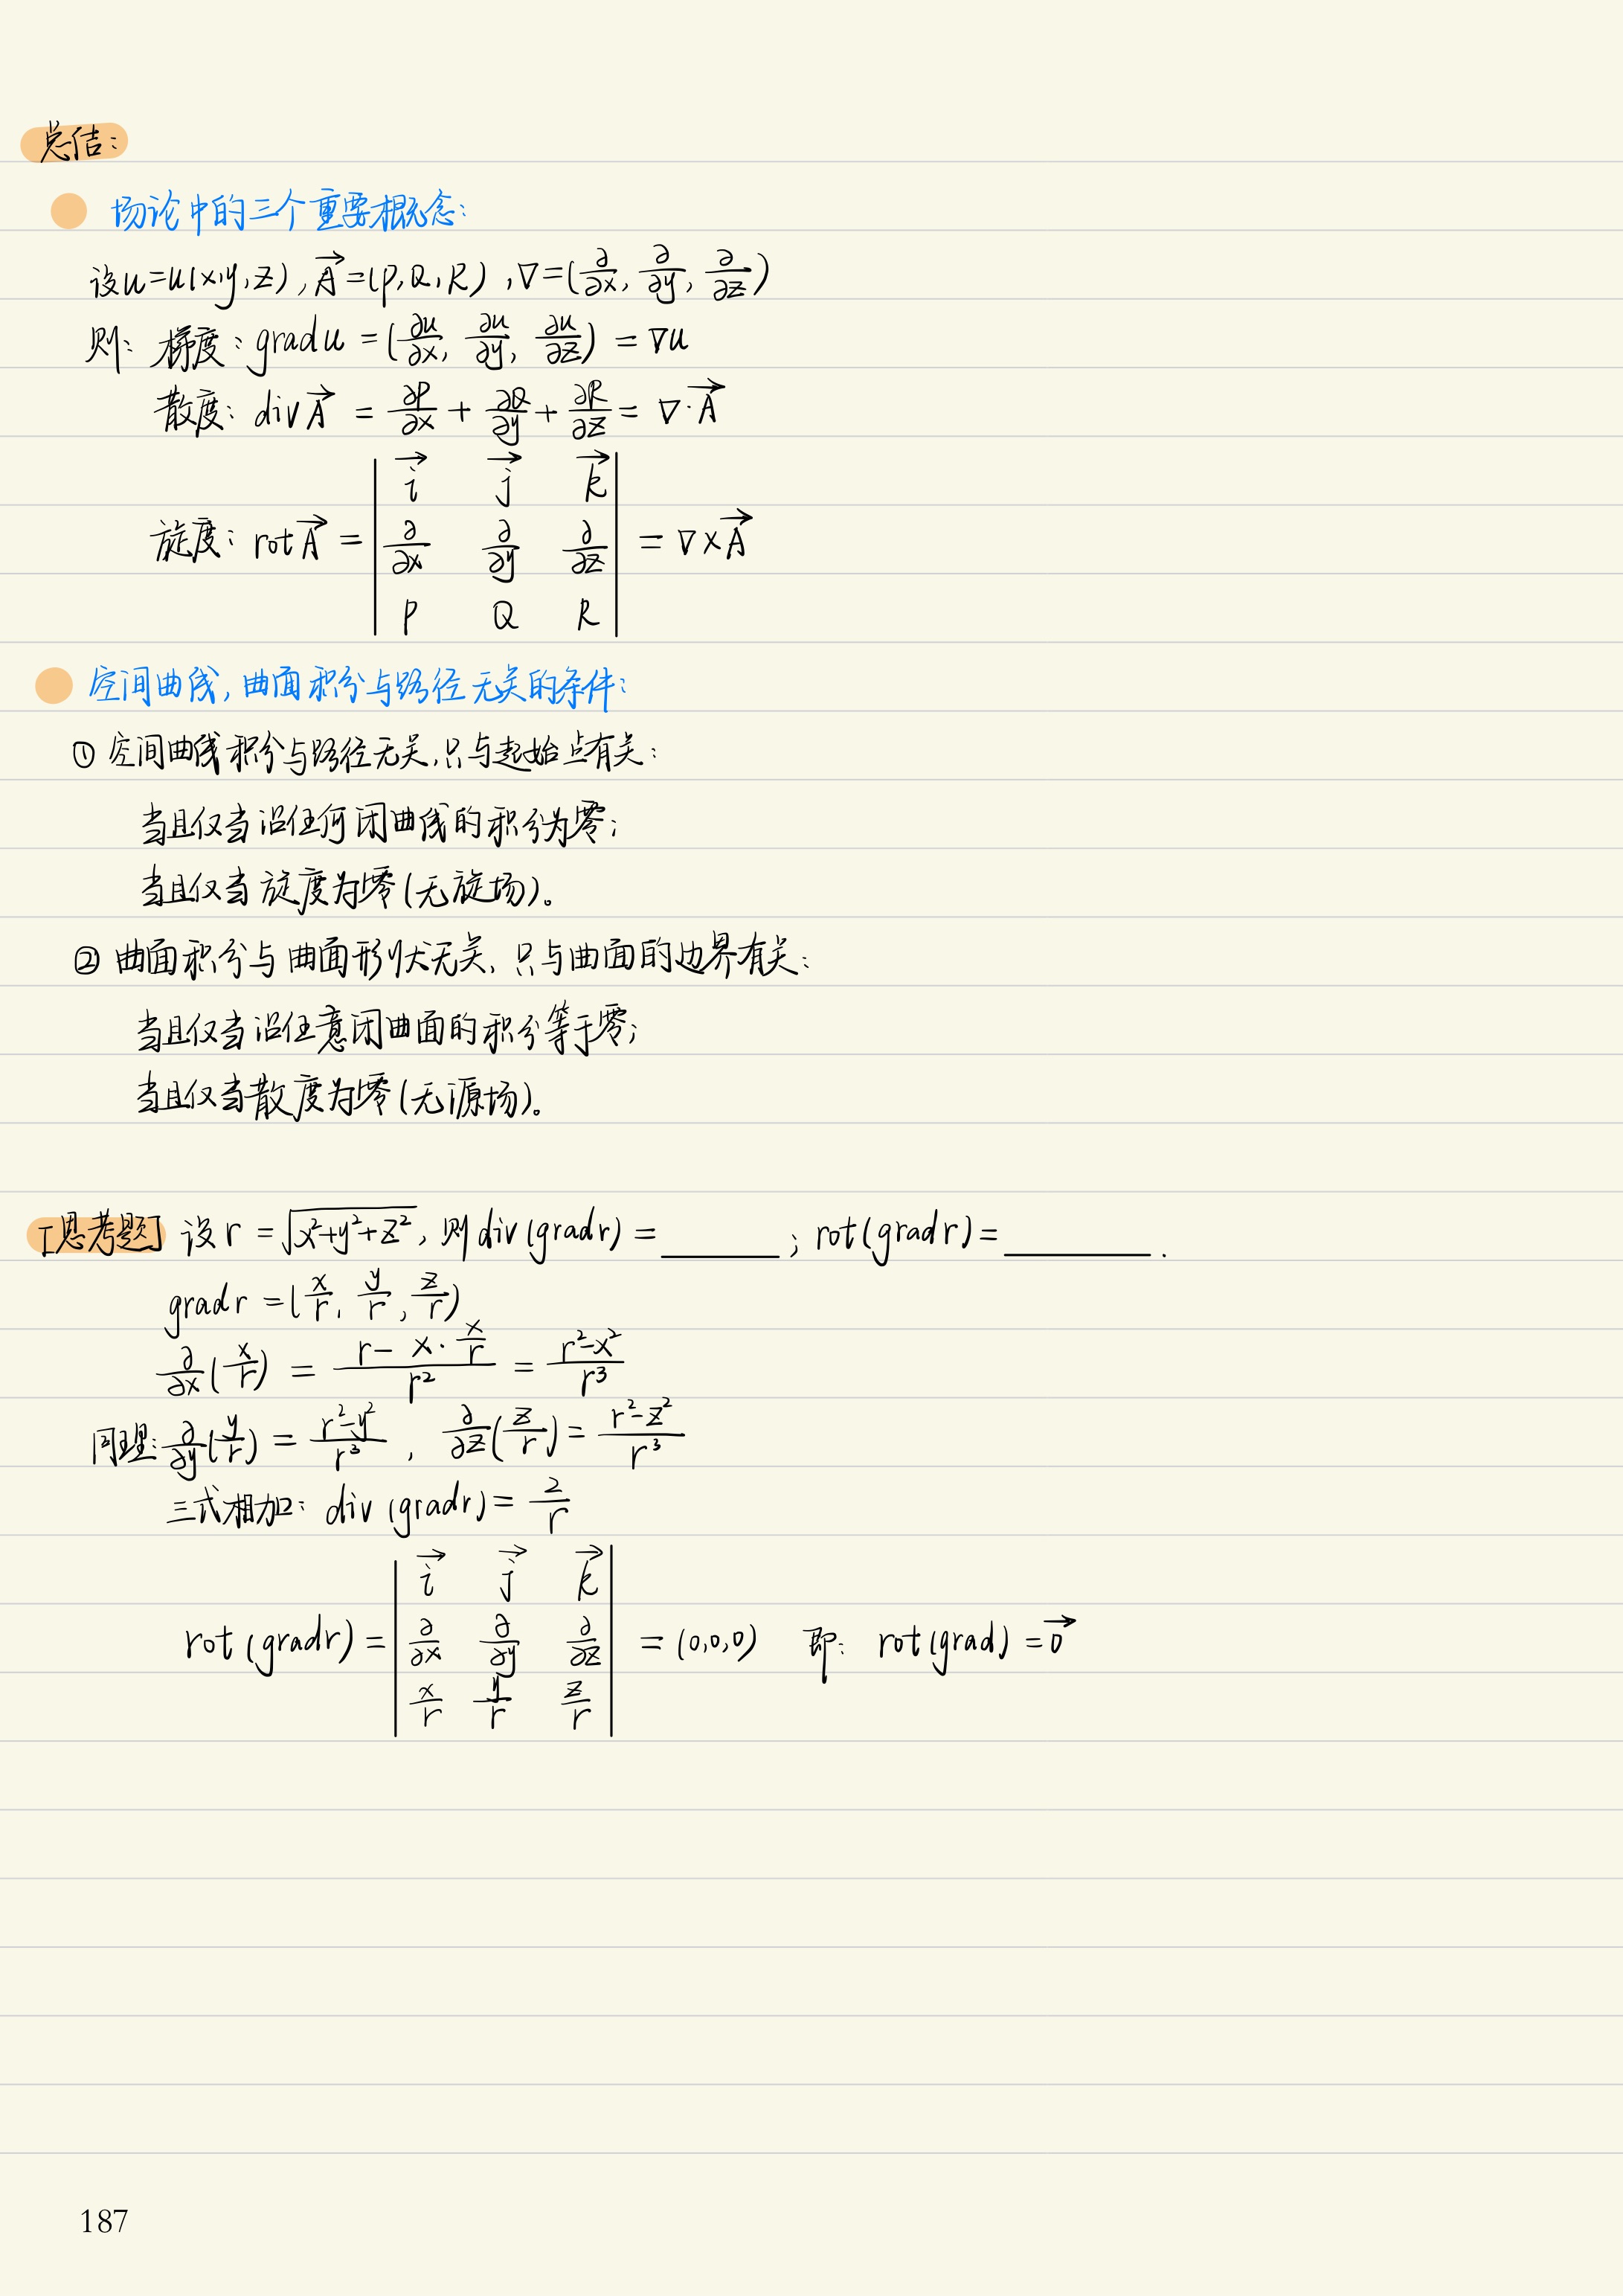 总结：
场论中的三个重要概念：
设u=u(x,y,z), $\vec{A}$=(P,Q,R), ∇=($\frac{∂}{∂x}$, $\frac{∂}{∂y}$, $\frac{∂}{∂z}$)
则：梯度：grad u = ($\frac{∂u}{∂x}$, $\frac{∂u}{∂y}$, $\frac{∂u}{∂z}$) = ∇u
散度：div $\vec{A}$ = $\frac{∂P}{∂x}$ + $\frac{∂Q}{∂y}$ + $\frac{∂R}{∂z}$ = ∇·$\vec{A}$
旋度：rot $\vec{A}$ = $\begin{vmatrix} \vec{i} & \vec{j} & \vec{k} \\ \frac{∂}{∂x} & \frac{∂}{∂y} & \frac{∂}{∂z} \\ P & Q & R \end{vmatrix}$ = ∇×$\vec{A}$
空间曲线，曲面积分与路径无关的条件：
① 空间曲线积分与路径无关，只与起始点有关：
当且仅当沿任何闭曲线的积分为零；
当且仅当旋度为零(无旋场)。
② 曲面积分与曲面形状无关，只与曲面的边界有关：
当且仅当沿任意闭曲面的积分等于零；
当且仅当散度为零(无源场)。
[思考题] 设 r = $\sqrt{x^2+y^2+z^2}$, 则 div(grad r) = ______ ; rot(grad r) = ______ .
grad r = ($\frac{x}{r}$, $\frac{y}{r}$, $\frac{z}{r}$)
$\frac{∂}{∂x}$($\frac{x}{r}$) = $\frac{r - x·\frac{x}{r}}{r^2}$ = $\frac{r^2-x^2}{r^3}$
同理：$\frac{∂}{∂y}$($\frac{y}{r}$) = $\frac{r^2-y^2}{r^3}$ , $\frac{∂}{∂z}$($\frac{z}{r}$) = $\frac{r^2-z^2}{r^3}$
三式相加：div(grad r) = $\frac{2}{r}$
rot(grad r) = $\begin{vmatrix} \vec{i} & \vec{j} & \vec{k} \\ \frac{∂}{∂x} & \frac{∂}{∂y} & \frac{∂}{∂z} \\ \frac{x}{r} & \frac{y}{r} & \frac{z}{r} \end{vmatrix}$ = (0,0,0) 即：rot(grad) = $\vec{0}$
187